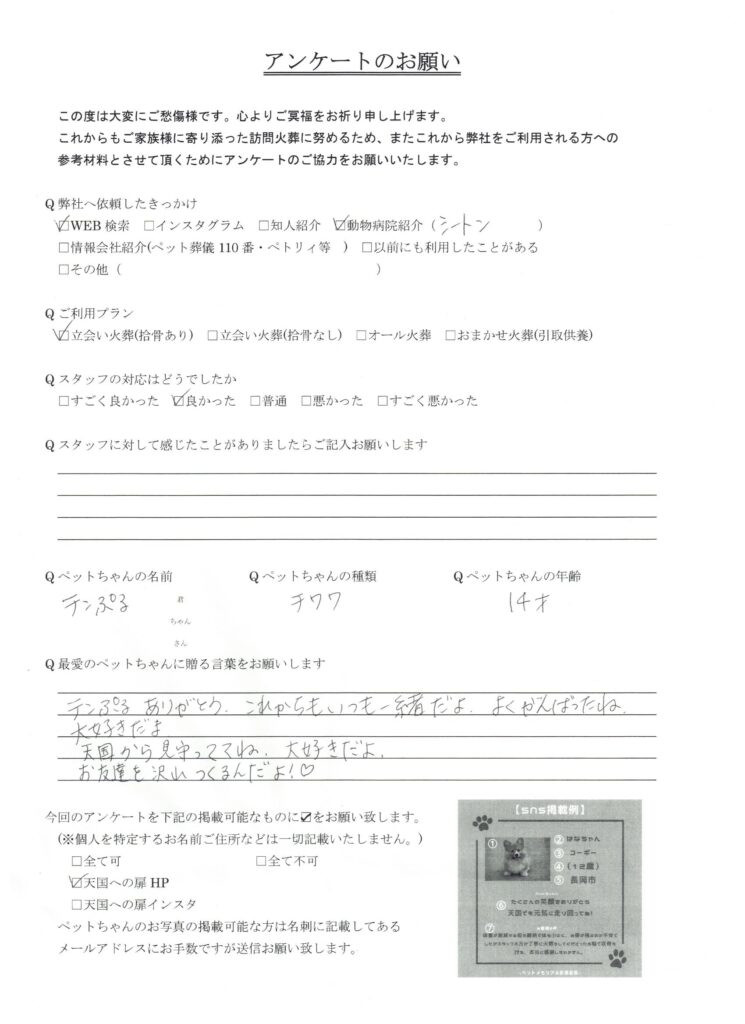 アンケートのお願い
この度は大変にご愁傷様です。心よりご冥福をお祈り申し上げます。
これからもご家族様に寄り添った訪問火葬に努めるため、またこれから弊社をご利用される方への
参考材料とさせて頂くためにアンケートのご協力をお願いいたします。
Q 弊社へ依頼したきっかけ
☑WEB 検索 □インスタグラム □知人紹介 ☑動物病院紹介（シートン ）
□情報会社紹介(ペット葬儀 110 番・ペトリィ等 ) □以前にも利用したことがある
□その他（ ）
Q ご利用プラン
☑立会い火葬(拾骨あり) □立会い火葬(拾骨なし) □オール火葬 □おまかせ火葬(引取供養)
Q スタッフの対応はどうでしたか
□すごく良かった ☑良かった □普通 □悪かった □すごく悪かった
Q スタッフに対して感じたことがありましたらご記入お願いします
Q ペットちゃんの名前 Q ペットちゃんの種類 Q ペットちゃんの年齢
テンぷる 君 チワワ 14才
ちゃん
さん
Q 最愛のペットちゃんに贈る言葉をお願いします
テンぷる ありがとう. これからもいつも一緒だよ. よくがんばったね.
大好きだよ
天国から見守っててね. 大好きだよ.
お友達を沢山つくるんだよ!♡
今回のアンケートを下記の掲載可能なものに☑をお願い致します。
(※個人を特定するお名前ご住所などは一切記載いたしません。)
□全て可 □全て不可
☑天国への扉 HP
□天国への扉インスタ
ペットちゃんのお写真の掲載可能な方は名刺に記載してある
メールアドレスにお手数ですが送信お願い致します。
【sns掲載例】
① ② はなちゃん
③ コーギー
④ (12歳)
⑤ 長岡市
⑥ たくさんの笑顔をありがとう
天国でも元気に走り回ってね!
⑦